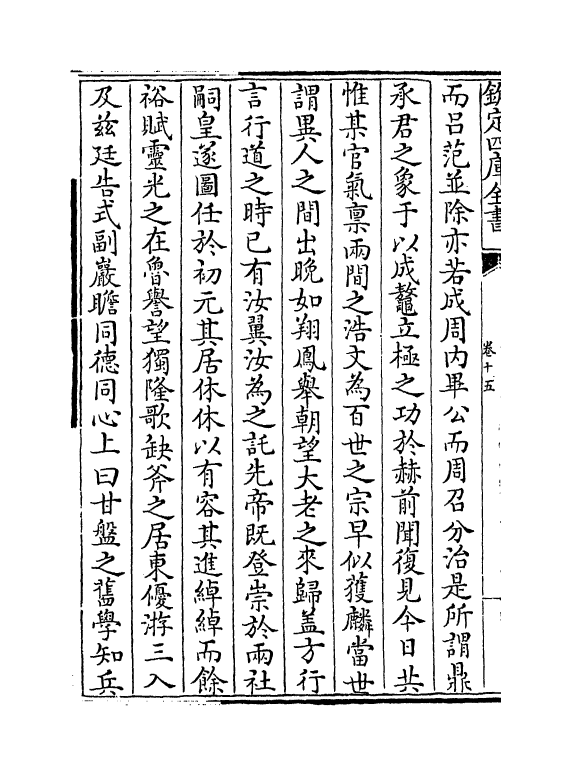 欽定四庫全書
卷十五
而吕范並除亦若成周内畢公而周召分治是所謂鼎
承君之象于以成鼇立極之功於赫前聞復見今日共
惟某官氣禀兩間之浩文為百世之宗早似獲麟當世
謂異人之間出晚如翔鳳舉朝望大老之來歸盖方行
言行道之時已有汝翼汝為之託先帝既登崇於兩社
嗣皇遂圖任於初元其居休休以有容其進綽綽而餘
裕賦靈光之在魯譽望獨隆歌缺斧之居東優游三入
及兹廷告式副巖瞻同德同心上曰甘盤之舊學知兵